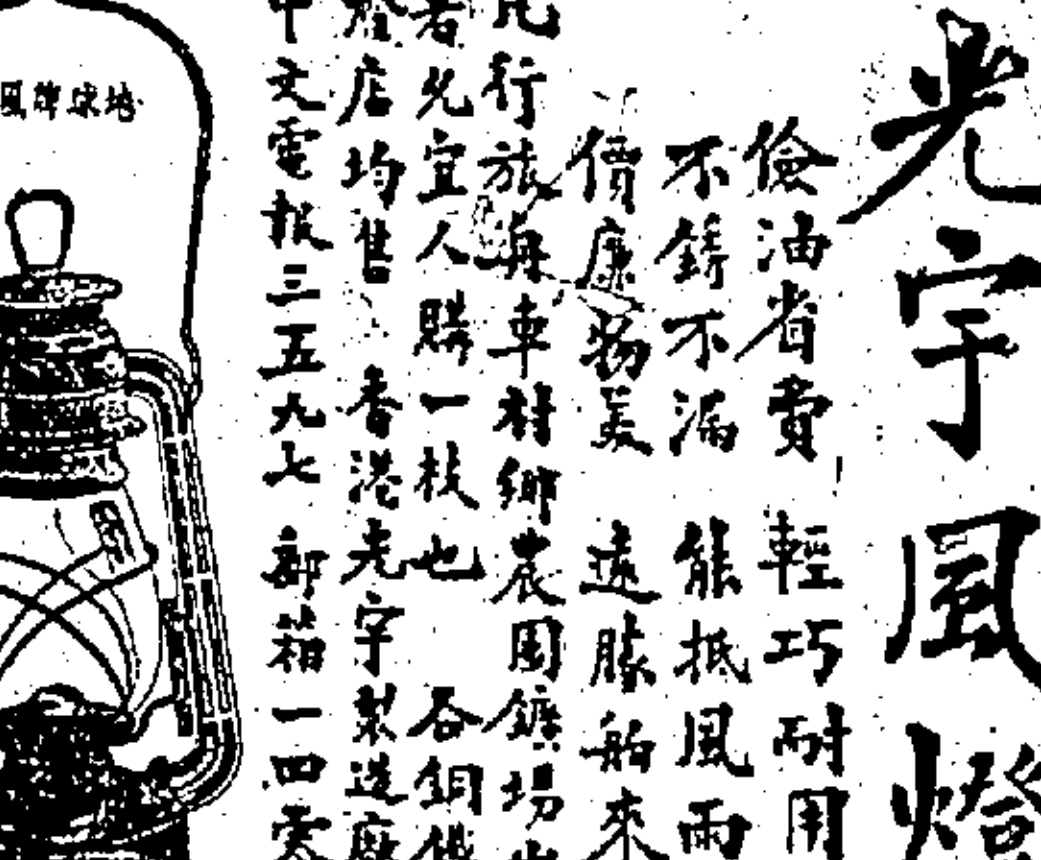 光宇風燈
儉油省費 輕巧耐用
不銹不漏 能抵風雨
價廉物美 遠勝舶來
凡行旅舟車村鄉農圃鑛場
者尤宜人購一枝也 各銅鐵
燈店均售 香港光宇製造廠
中文電報三五九七 郵箱一四零
地球牌風